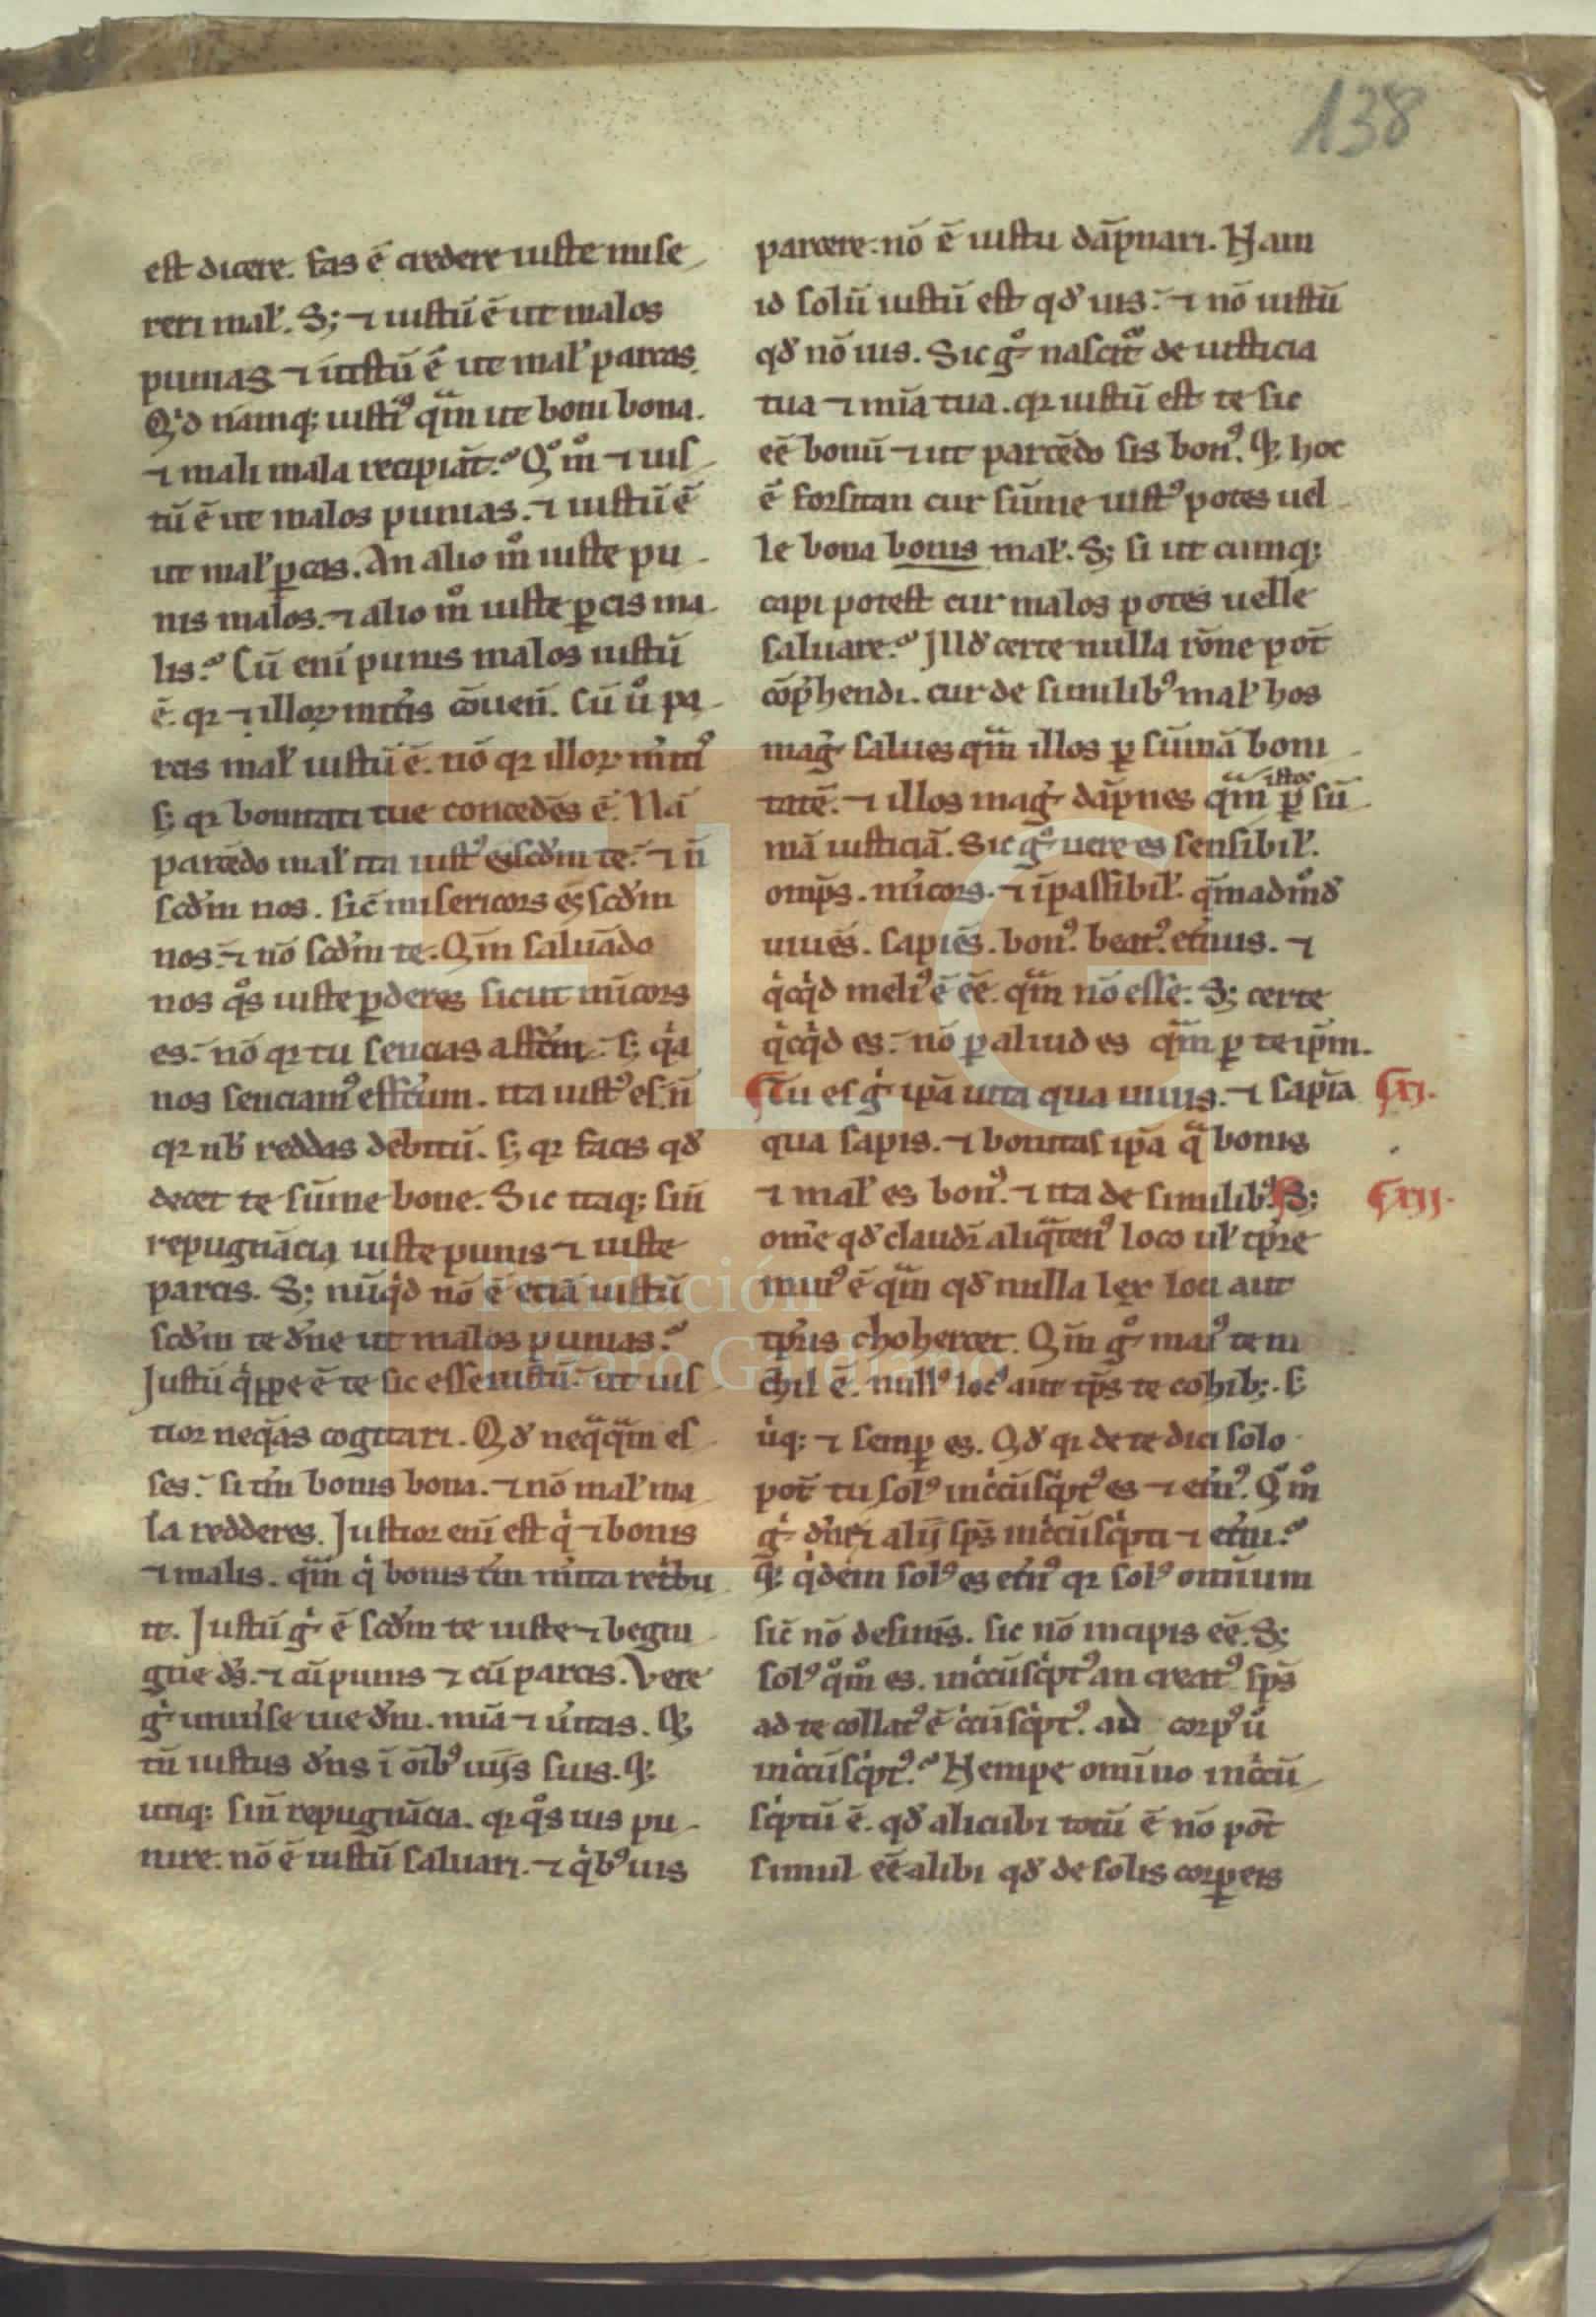 138
est dicere. fas ē credere iuste mise
reri mal̓. S; ⁊ iustū ē ut malos
punias ⁊ iustū ē ut mal̓ parcas.
Qͥd namq; iustiꝰ qᵃm ut boni bona.
⁊ mali mala recipiāt. Qᵒmᵒ ⁊ ius
tū ē ut malos punias. ⁊ iustū ē
ut mal̓ ꝑcas. An alio mᵒ iuste pu
nis malos. ⁊ alio mᵒ iuste ꝑcis ma
lis. Cū eni punis malos iustū
ē. qꝛ ⁊ illoꝝ mitis c̄ueñ. Cū uᵒ pa
rcis mal̓ iustū ē. nō qꝛ illoꝝ mitꝰ
s; qꝛ bonitati tue concedēs ē. Nā
parcēdo mal̓ ita iustꝰ es scd̓m te. ⁊ ñ
scd̓m nos. sic̄ misericors es scd̓m
nos. ⁊ nō scd̓m te. Qm̄ saluādo
nos qᵒs iuste ꝑderes sicut mīcors
es. nō qꝛ tu sencias affc̄m. s; qͥa
nos senciamꝰ effc̄um. ita iustꝰ es. ñ
qꝛ nb̓ reddas debitū. s; qꝛ facis qd̓
decet te sūme bone. Sic itaq; siñ
repugnācia iuste punis ⁊ iuste
parcis. S; nūqͥd nō ē etiā iustū
scd̓m te dn̄e ut malos punias.
Justū qͥppe ē te sic esse iustū. ut ius
tior neq̄as cogitari. Qd̓ neqᵃqᵃm es
ses. si tm̄ bonis bona. ⁊ nō mal̓ ma
la redderes. Justior eni est qͥ ⁊ bonis
⁊ malis. qᵃm qͥ bonis tm̄ mͥta retͥbu
it. Justū gͥ ē scd̓m te iuste ⁊ begni
gne ds̄. ⁊ cū punis ⁊ cū parcis. Vere
gͥ uniuͥse uie dn̄i. mīa ⁊ uͥtas. ⁊
tn̄ iustus dn̄s ī oībꝰ uijs suis. ⁊
utiq; siñ repugnācia. qꝛ qᵒs uis pu
nire. nō ē iustū saluari. ⁊ qͥbꝰ uis
parcere. nō ē iustū dāpnari. Nam
id solū iustū est qd̓ uis. ⁊ nō iustū
qd̓ nō uis. Sic gᵒ nascit̄ de iusticia
tua ⁊ mīa tua. qꝛ iustū est te sic
eē bonū ⁊ ut parcēdo sis bonꝰ. ⁊ hoc
ē forsitan cur sūme iustꝰ potes uel
le bona bonis mal̓. S; si ut cumq;
capi potest cur malos potes uelle
saluare. Jlld̓ certe nulla rōne pot̄
cōp̄hendi. cur de similibꝰ mal̓ hos
magͥ salues qᵃm illos ꝑ sūmā boni
tatē. ⁊ illos magͥ dāpnes qᵃm istos ꝑ sū
mā iusticiā. Sic gᵒ uere es sensibil̓.
omp̄s. mīcors. ⁊ īpassibil̓. qᵃmadmᵒd̓
uiuēs. sapiēs. bonꝰ. beatꝰ. et̓nus. ⁊
qͥcqͥd meliꝰ ē eē. qᵃm nō esse. S; certe
qͥcqͥd es. nō ꝑ aliud es qᵃm ꝑ te ip̄m.
Tu es gͥ ip̄a uita qua uiuis. ⁊ sap̄ia ¶xi.
qua sapis. ⁊ bonitas ip̄a qᵃ bonis
⁊ mal̓ es bonꝰ. ⁊ ita de similibꝰ. S; ¶xii.
om̄e qd̓ claudr̄ aliqᵃtenꝰ loco ul̓ tp̄re
minꝰ ē qᵃm qd̓ nulla lex loci aut
tp̄ris chohercet. Qm̄ gᵒ maiꝰ te ni
chil ē. nullꝰ locꝰ aut tp̄s te cohib;. s;
ubͥq; ⁊ semꝑ es. Qd̓ qꝛ de te dici solo
pot̄ tu solꝰ incͥcūscͥptꝰ es ⁊ et̓nꝰ. Qᵒmᵒ
gͥ dn̄r̄ alij sp̄s incͥcūscͥpti ⁊ et̓ni.
⁊ qͥdem solꝰ es et̓nꝰ qꝛ solꝰ omnium
sic̄ nō desinis. sic nō incipis eē. S;
solꝰ qᵒmᵒ es. incͥcūscͥptꝰ an creatꝰ sp̄s
ad te collatꝰ ē cͥcūscͥptꝰ. ad corpꝰ uᵒ
incͥcūscͥptꝰ. Nempe omnino incͥcū
scͥptū ē. qd̓ alicubi totū ē nō pōt
simul eē alibi qd̓ de solis corꝑeis
Fundación
Lázaro Galdiano